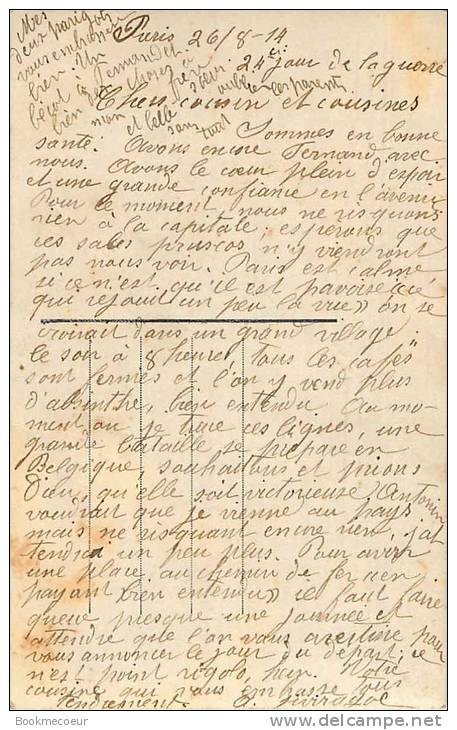 Paris 26/8-14
24e jour de la guerre
Chers cousin et cousines
Sommes en bonne
santé. Avons encore Fernand avec
nous. Avons le cœur plein d'espoir
et une grande confiance en l'avenir
Pour le moment, nous ne risquons
rien à la capitale, espérons que
ces sales pruscos n'y viendront
pas nous voir. Paris est calme
si ce n'est qu'il est pavoisé (ce
qui rejouit un peu la vue)) on se
croirait dans un grand village.
le soir à 8 heure, tous les cafés
sont fermés et l'on y vend plus
d'absinthe, bien entendu. Au mo-
ment ou je trace ces lignes, une
grande bataille se prépare en
Belgique, souhaitons et prions
Dieu, qu'elle soit victorieuse. Antonin
voudrait que je vienne au pays
mais ne risquant encore rien, j'at
tendrai un peu plus. Pour avoir
une place au chemin de fer en
payant bien entendu, il faut faire
queue presque une journée et
attendre que l'on vous avertisse pour
vous annoncer le jour du départ; ce
n'est point rigolo, hein. Notre
cousine qui vous embrasse tous
tendrement.
Mes
deux parigots
vous embrassent
bien. Un
bécot à Fernand et
bien des choses à
mon
et belle sœur
sans oublier les parents
tout
Bookmecoeur